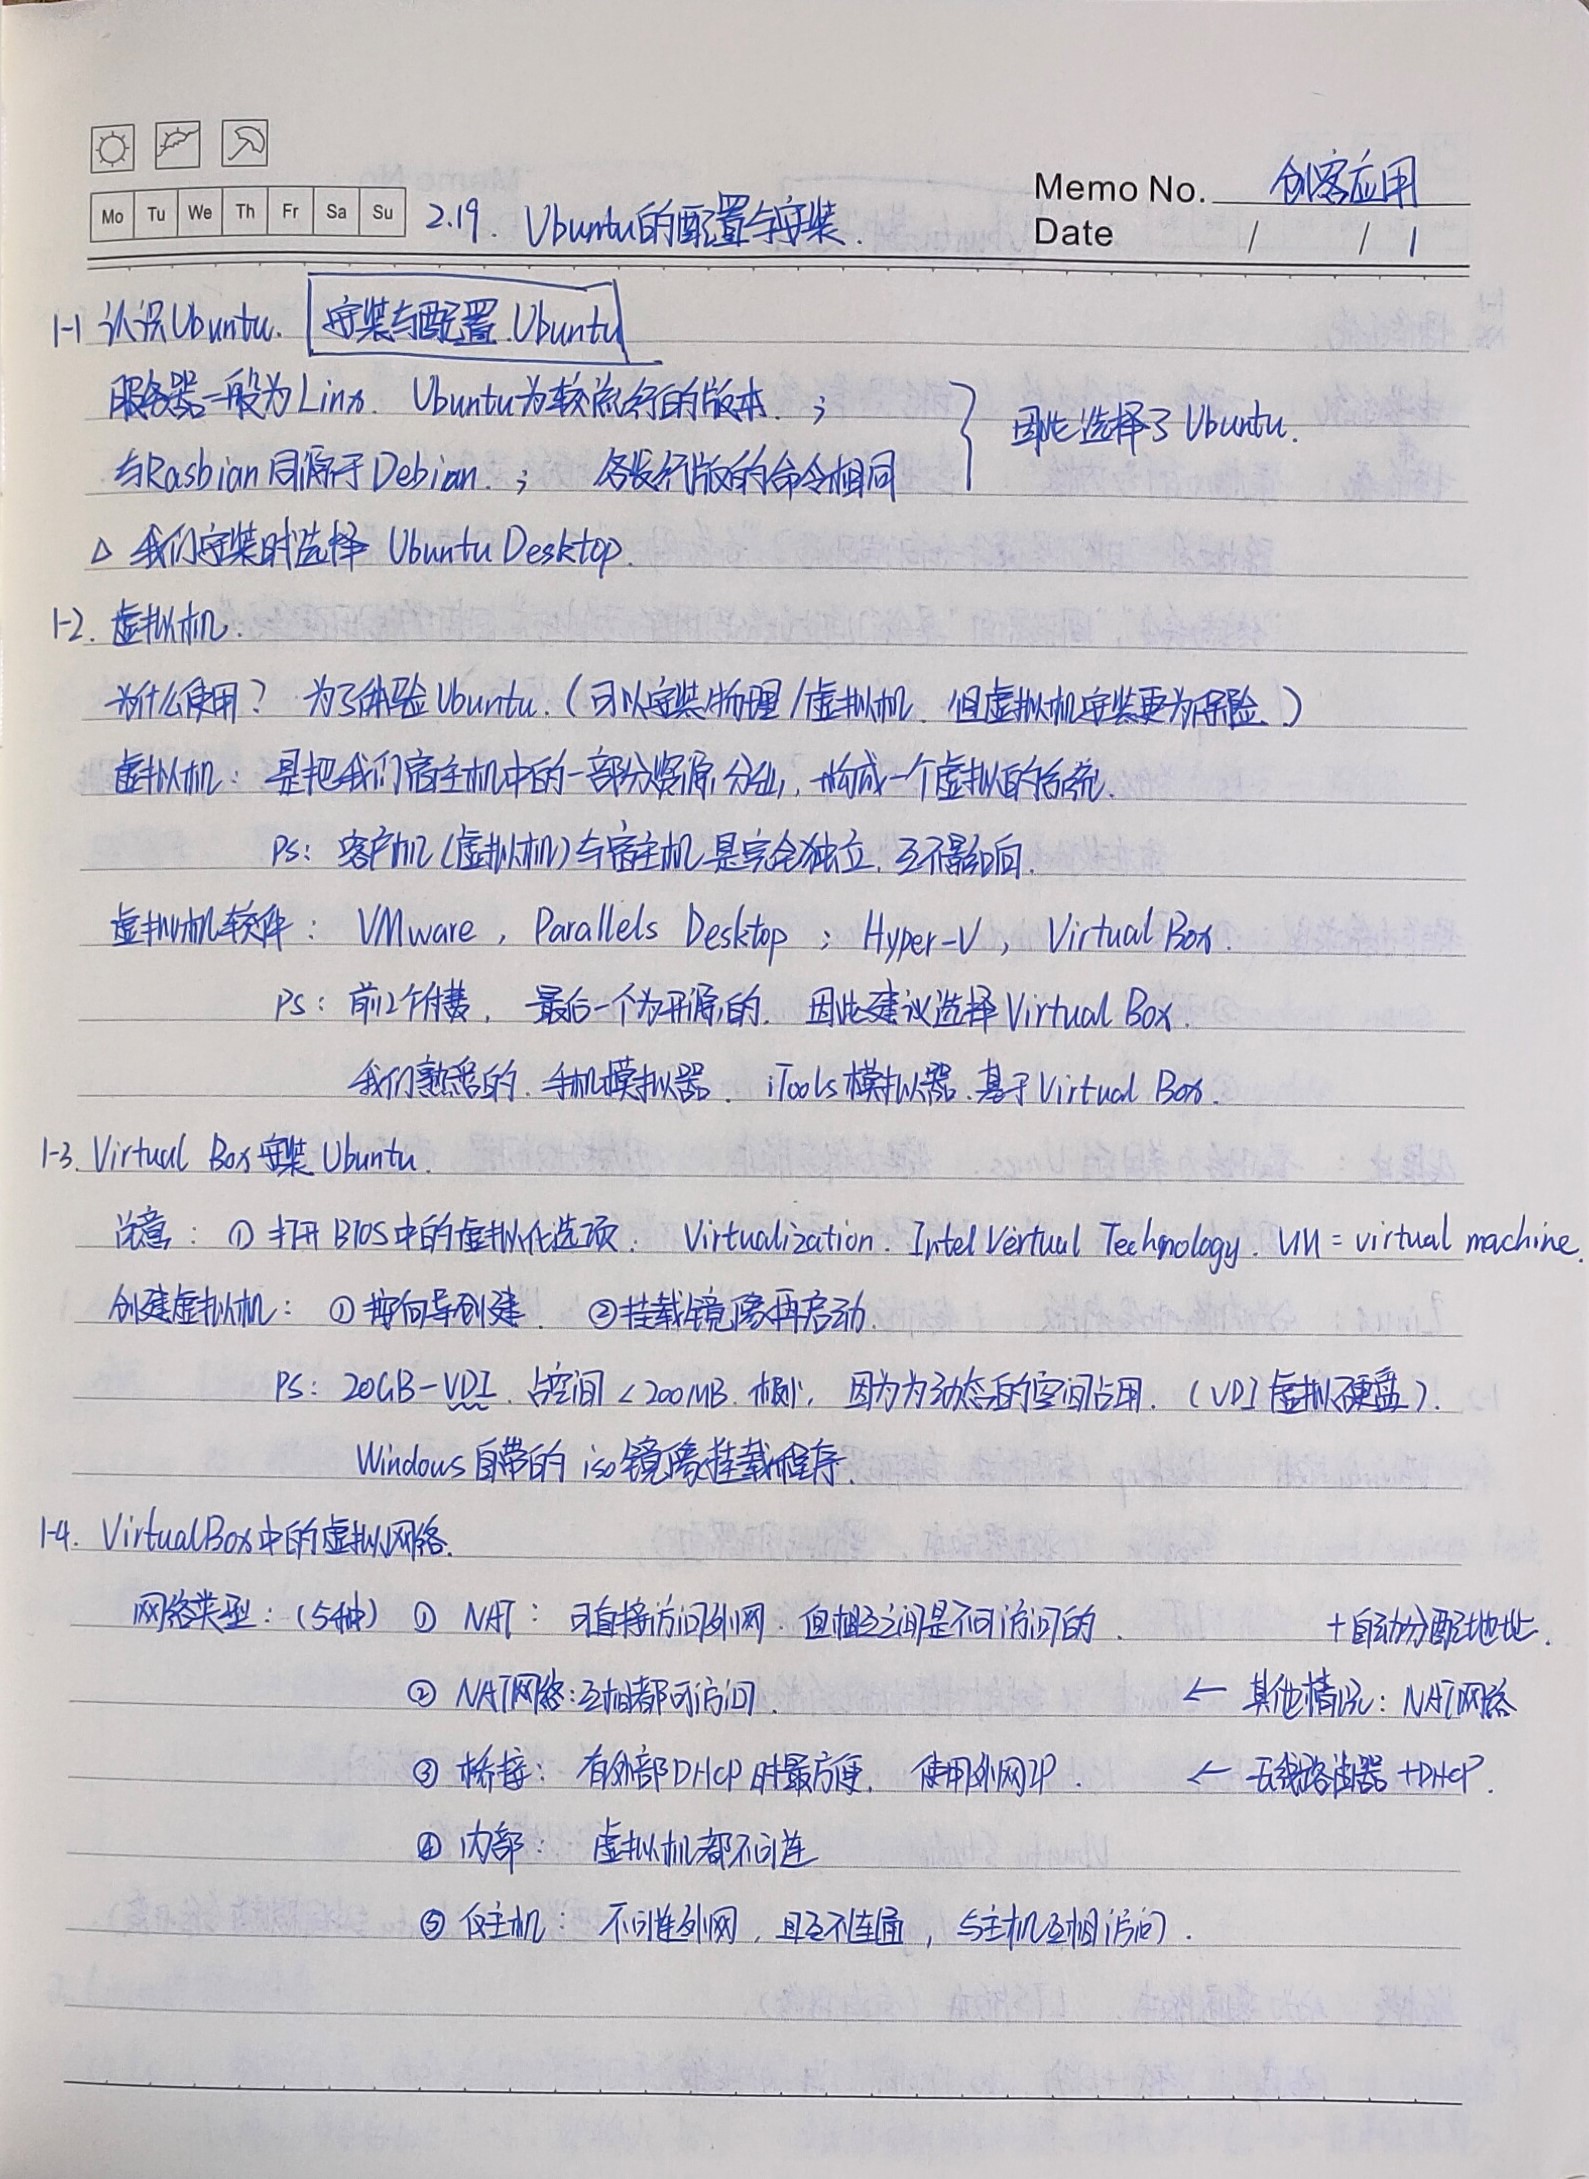 Memo No. 创客应用
Mo Tu We Th Fr Sa Su 2.19. Ubuntu的配置与安装.
Date / / 1
1-1 认识Ubuntu. 安装与配置.Ubuntu
服务器一般为Linx. Ubuntu为较流行的版本. ;
因此选择了Ubuntu.
与Rasbian同源于Debian. ; 各发行版的命令相同
△ 我们安装时选择 Ubuntu Desktop.
1-2. 虚拟机.
为什么使用? 为了体验Ubuntu.(可以安装物理/虚拟机. 但虚拟机安装更为保险.)
虚拟机: 是把我们宿主机中的一部分资源,分出,构成一个虚拟的系统.
PS: 客户机(虚拟机)与宿主机是完全独立.互不影响.
虚拟机软件: VMware, Parallels Desktop; Hyper-V, Virtual Box.
PS: 前2个付费, 最后一个为开源的. 因此建议选择Virtual Box.
我们熟悉的.手机模拟器. iTools模拟器.基于Virtual Box.
1-3. Virtual Box安装Ubuntu.
注意: ① 打开BIOS中的虚拟化选项. Virtualization. Intel Vertual Technology. VM = virtual machine.
创建虚拟机: ① 按向导创建. ②挂载镜像再启动.
PS: 20GB-VDI. 占空间<200MB. 极小, 因为为动态的空间占用. (VDI虚拟硬盘).
Windows自带的 iso镜像挂载程序.
1-4. VirtualBox中的虚拟网络.
网络类型: (5种) ① NAT: 可直接访问外网. 但相互之间是不可访问的. +自动分配地址.
② NAT网络:互相都可访问. ← 其他情况: NAT网络
③ 桥接: 有外部DHCP时最方便. 使用外网IP. ← 无线路由器+DHCP.
④ 内部: 虚拟机都不可连
⑤ 仅主机: 不可连外网, 且互不连通, 与主机互相访问.